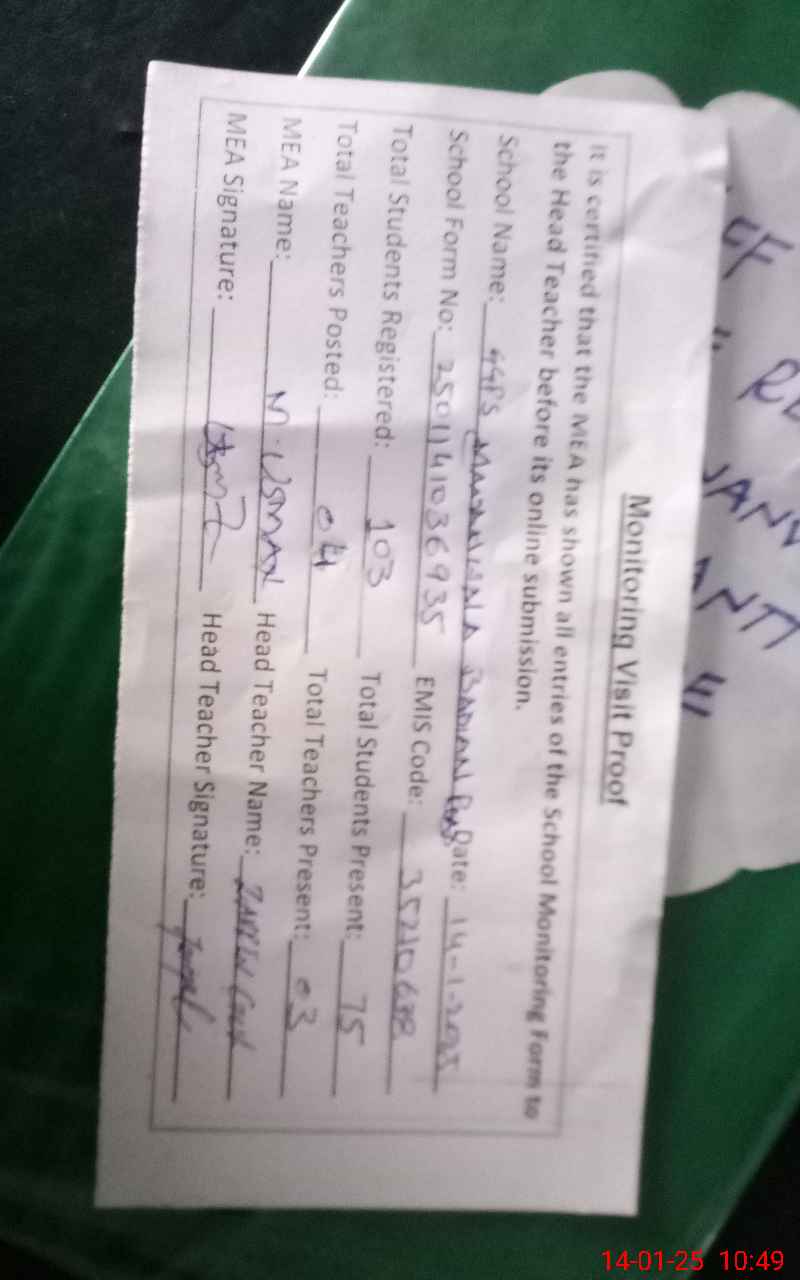 Monitoring Visit Proof
It is certified that the MEA has shown all entries of the School Monitoring Form to
the Head Teacher before its online submission.
School Name: GGPS BADIAN Date: 14-1-2025
School Form No: 2501141036935 EMIS Code:
Total Students Registered: 103 Total Students Present: 75
Total Teachers Posted: 04 Total Teachers Present: 03
MEA Name: M. USMAN Head Teacher Name:
MEA Signature: Head Teacher Signature:
14-01-25 10:49